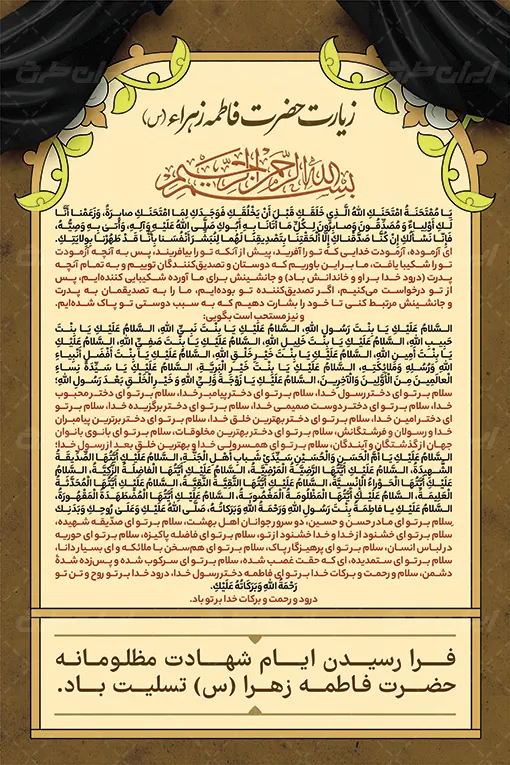 ایران طرح
ایران طرح
زیارت حضرت فاطمه زهراء (س)
بسم الله الرحمن الرحیم
يَا مُمْتَحَنَةُ امْتَحَنَكِ اللهُ الَّذِي خَلَقَكِ قَبْلَ أَنْ يَخْلُقَكِ فَوَجَدَكِ لِمَا امْتَحَنَكِ صَابِرَةً، وَزَعَمْنا أَنَّا
لَكِ أَوْلِياءُ وَ مُصَدِّقُونَ وَصابِرُونَ لِكُلِّ مَا أَتَانَا بِهِ أَبُوكِ صَلَّى اللهُ عَلَيْهِ وَ آلِهِ، وَأَتَىٰ بِهِ وَصِيُّهُ،
فَإِنَّا نَسْأَلُكِ إِنْ كُنَّا صَدَّقْناكِ إِلّا أَلْحَقْتِنا بِتَصْدِيقِنَا لَهُما لِنُبَشِّرَ أَنْفُسَنا بِأَنَّا قَدْ طَهُرْنَا بِوِلايَتِكِ.
ای آزموده، آزمودت خدایی که تو را آفرید، پیش از آنکه تو را بیافریند، پس به آنچه آزمودت
تو را شکیبا یافت، ما بر این باوریم که دوستان و تصدیق‌کنندگان توییم و به تمام آنچه
پدرت (درود خدا بر او و خاندانش باد) و جانشینش برای ما آورده شکیبایی کننده‌ایم، پس
از تو درخواست می‌کنیم، اگر تصدیق‌کننده تو بوده‌ایم، ما را به تصدیقمان به پدرت
و جانشینش مرتبط کنی تا خود را بشارت دهیم که به سبب دوستی تو پاک شده‌ایم.
و نیز مستحب است بگویی:
السَّلامُ عَلَيْكِ يَا بِنْتَ رَسُولِ اللهِ، السَّلامُ عَلَيْكِ يَا بِنْتَ نَبِيِّ اللهِ، السَّلامُ عَلَيْكِ يَا بِنْتَ
حَبِيبِ اللهِ، السَّلامُ عَلَيْكِ يَا بِنْتَ خَلِيلِ اللهِ، السَّلامُ عَلَيْكِ يَا بِنْتَ صَفِيِّ اللهِ، السَّلامُ عَلَيْكِ
يَا بِنْتَ أَمِينِ اللهِ، السَّلامُ عَلَيْكِ يَا بِنْتَ خَيْرِ خَلْقِ اللهِ، السَّلامُ عَلَيْكِ يَا بِنْتَ أَفْضَلِ أَنْبِياءِ
اللهِ وَرُسُلِهِ وَمَلائِكَتِهِ، السَّلامُ عَلَيْكِ يَا بِنْتَ خَيْرِ الْبَرِيَّةِ، السَّلامُ عَلَيْكِ يَا سَيِّدَةَ نِساءِ
الْعالَمِينَ مِنَ الْأَوَّلِينَ وَالْآخِرِينَ، السَّلامُ عَلَيْكِ يَا زَوْجَةَ وَلِيِّ اللهِ وَ خَيْرِ الْخَلْقِ بَعْدَ رَسُولِ اللهِ؛
سلام بر تو ای دختر رسول خدا، سلام بر تو ای دختر پیامبر خدا، سلام بر تو ای دختر محبوب
خدا، سلام بر تو ای دختر دوست صمیمی خدا، سلام بر تو ای دختر برگزیده خدا، سلام بر تو
ای دختر امین خدا، سلام بر تو ای دختر بهترین خلق خدا، سلام بر تو ای دختر برترین پیامبران
خدا و رسولان و فرشتگانش، سلام بر تو ای دختر بهترین مخلوقات، سلام بر تو ای بانوی بانوان
جهان از گذشتگان و آیندگان، سلام بر تو ای همسر ولی خدا و بهترین خلق بعد از رسول خدا؛
السَّلامُ عَلَيْكِ يَا أُمَّ الْحَسَنِ وَالْحُسَيْنِ سَيِّدَيْ شَبابِ أَهْلِ الْجَنَّةِ، السَّلامُ عَلَيْكِ أَيَّتُهَا الصِّدِّيقَةُ
الشَّهِيدَةُ، السَّلامُ عَلَيْكِ أَيَّتُهَا الرَّضِيَّةُ الْمَرْضِيَّةُ، السَّلامُ عَلَيْكِ أَيَّتُهَا الْفاضِلَةُ الزَّكِيَّةُ، السَّلامُ
عَلَيْكِ أَيَّتُهَا الْحَوْراءُ الْإِنْسِيَّةُ، السَّلامُ عَلَيْكِ أَيَّتُهَا التَّقِيَّةُ النَّقِيَّةُ، السَّلامُ عَلَيْكِ أَيَّتُهَا الْمُحَدَّثَةُ
الْعَلِيمَةُ، السَّلامُ عَلَيْكِ أَيَّتُهَا الْمَظْلُومَةُ الْمَغْصُوبَةُ، السَّلامُ عَلَيْكِ أَيَّتُهَا الْمُضْطَهَدَةُ الْمَقْهُورَةُ،
السَّلامُ عَلَيْكِ يَا فاطِمَةُ بِنْتَ رَسُولِ اللهِ وَرَحْمَةُ اللهِ وَبَرَكاتُهُ، صَلَّى اللهُ عَلَيْكِ وَعَلَىٰ رُوحِكِ وَبَدَنِكِ
سلام بر تو ای مادر حسن و حسین، دو سرور جوانان اهل بهشت، سلام بر تو ای صدّیقه شهیده،
سلام بر تو ای خشنود از خدا و خدا خشنود از تو، سلام بر تو ای فاضله پاکیزه، سلام بر تو ای حوریه
در لباس انسان، سلام بر تو ای پرهیزگار پاک، سلام بر تو ای هم‌سخن با ملائکه و ای بسیار دانا،
سلام بر تو ای ستمدیده، ای که حقت غصب شده، سلام بر تو ای سرکوب شده و پس‌زده شدهٔ
دشمن، سلام و رحمت و برکات خدا بر تو ای فاطمه دختر رسول خدا، درود خدا بر تو و روح و تن تو
رَحْمَةُ اللهِ وَبَرَكَاتُهُ عَلَيْكِ.
درود و رحمت و برکات خدا بر تو باد.
فرا رسیدن ایام شهادت مظلومانه
حضرت فاطمه زهرا (س) تسلیت باد.